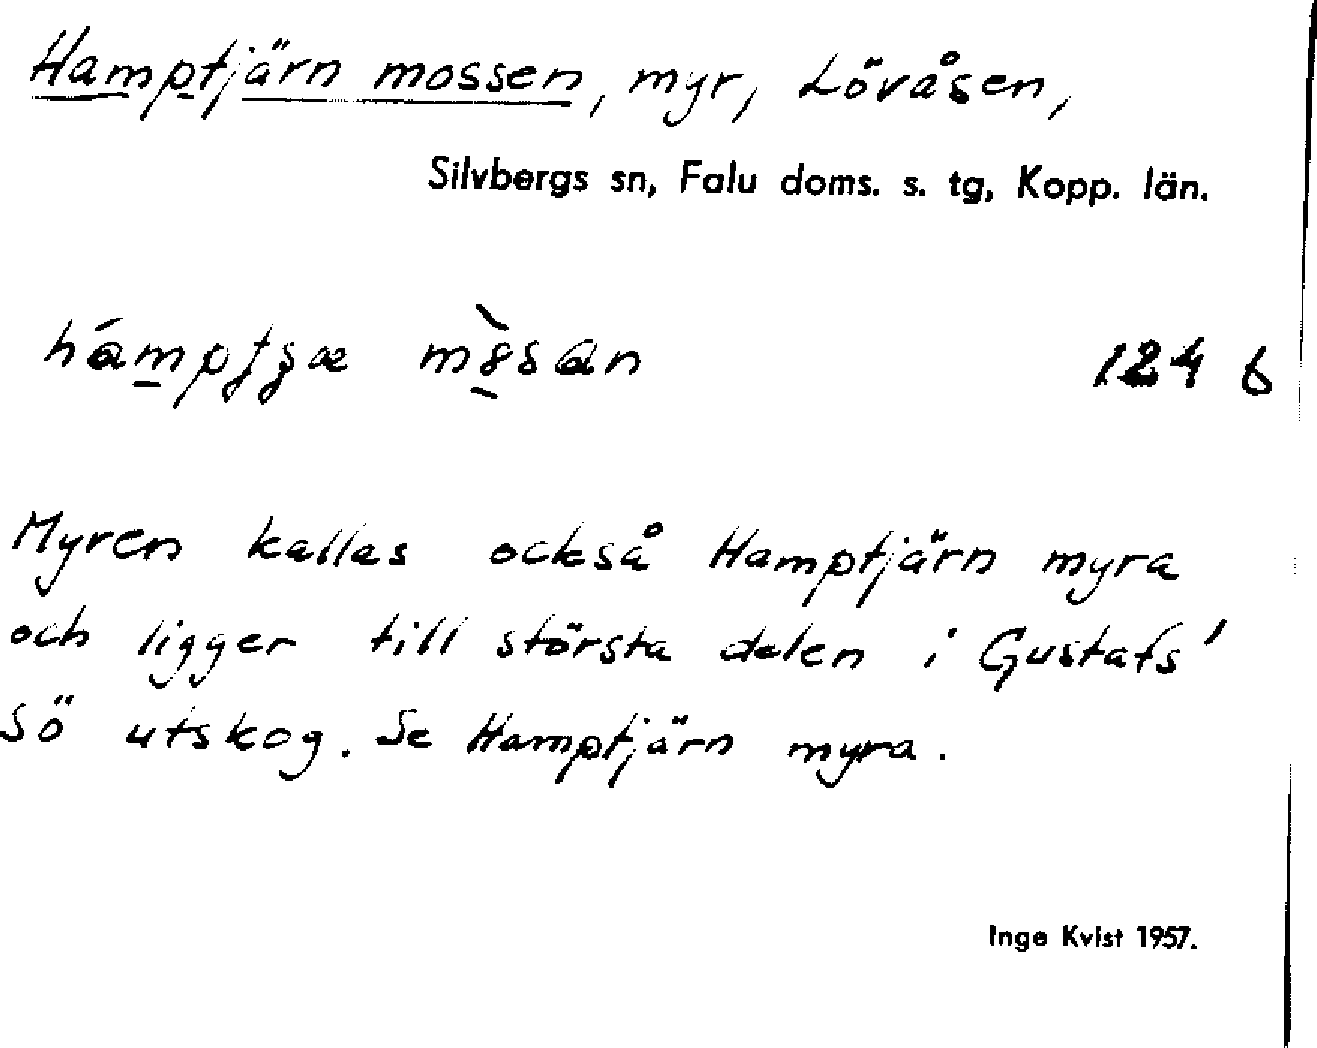 Hamptjärn mossen, myr, Lövåsen,
Silvbergs sn, Falu doms. s. tg, Kopp. län.
124 b
Myren kallas också Hamptjärn myra
och ligger till största delen i Gustafs'
sö utskog. Se Hamptjärn myra.
Inge Kvist 1957.